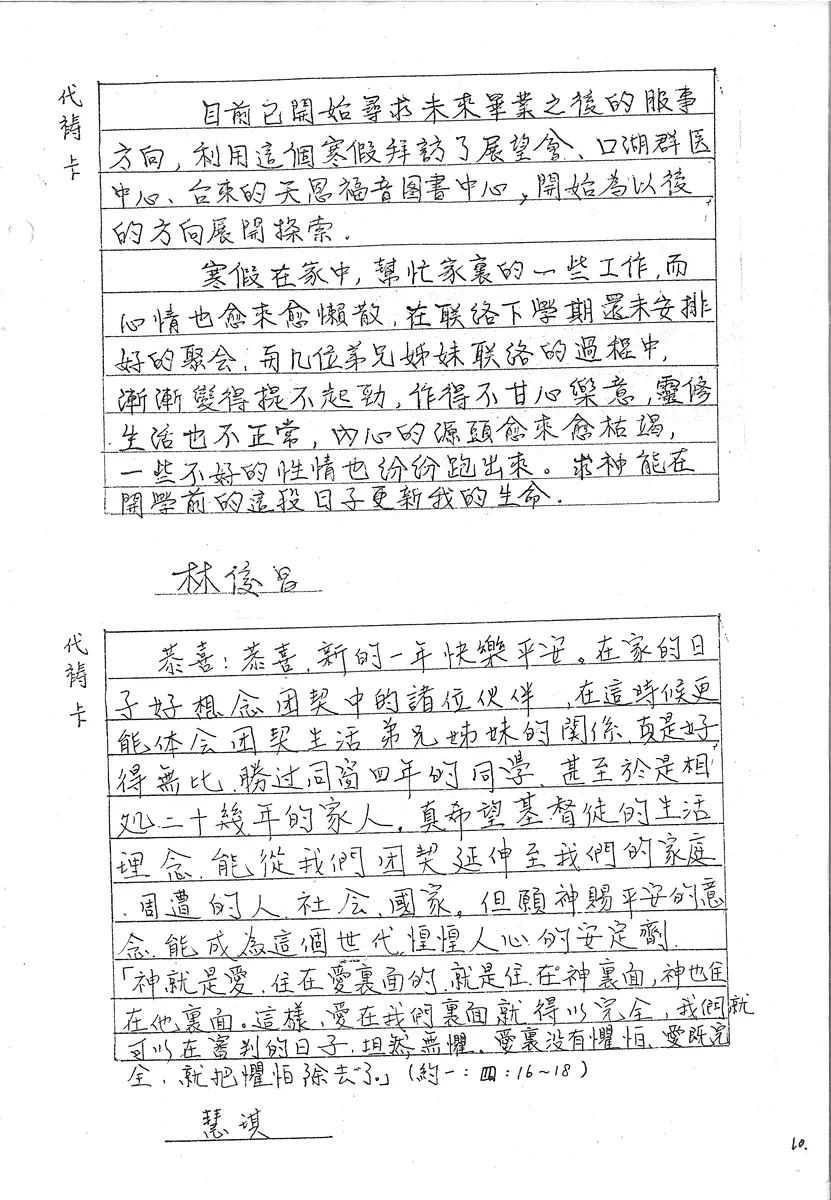 代禱卡
目前已開始尋求未來畢業之後的服事
方向,利用這個寒假拜訪了展望會、口湖群医
中心、台東的天恩福音图書中心,開始為以後
的方向展開探索.
寒假在家中,幫忙家裏的一些工作,而
心情也愈來愈懶散,在联络下學期還未安排
好的聚会,而几位弟兄姊妹联络的過程中,
漸漸變得提不起勁,作得不甘心樂意,靈修
生活也不正常,內心的源頭愈來愈枯竭,
一些不好的性情也纷纷跑出來。求神能在
開學前的這段日子更新我的生命.
林俊昌
代禱卡
恭喜!恭喜,新的一年快樂平安。在家的日
子好想念团契中的諸位伙伴,在這時候更
能体会团契生活弟兄姊妹的関係,真是好
得無比,勝过同窗四年的同學,甚至於是相
处二十幾年的家人。真希望基督徒的生活
理念,能從我們团契延伸至我們的家庭
、周遭的人、社会、國家。但願神賜平安的意
念,能成為這個世代,惶惶人心的安定劑.
「神就是愛,住在愛裏面的,就是住在神裏面,神也住
在他裏面。這樣,愛在我們裏面就得以完全,我們就
可以在審判的日子,坦然無懼。愛裏没有懼怕,愛既完
全,就把懼怕除去了。」(約一:四:16~18)
慧琪
10.